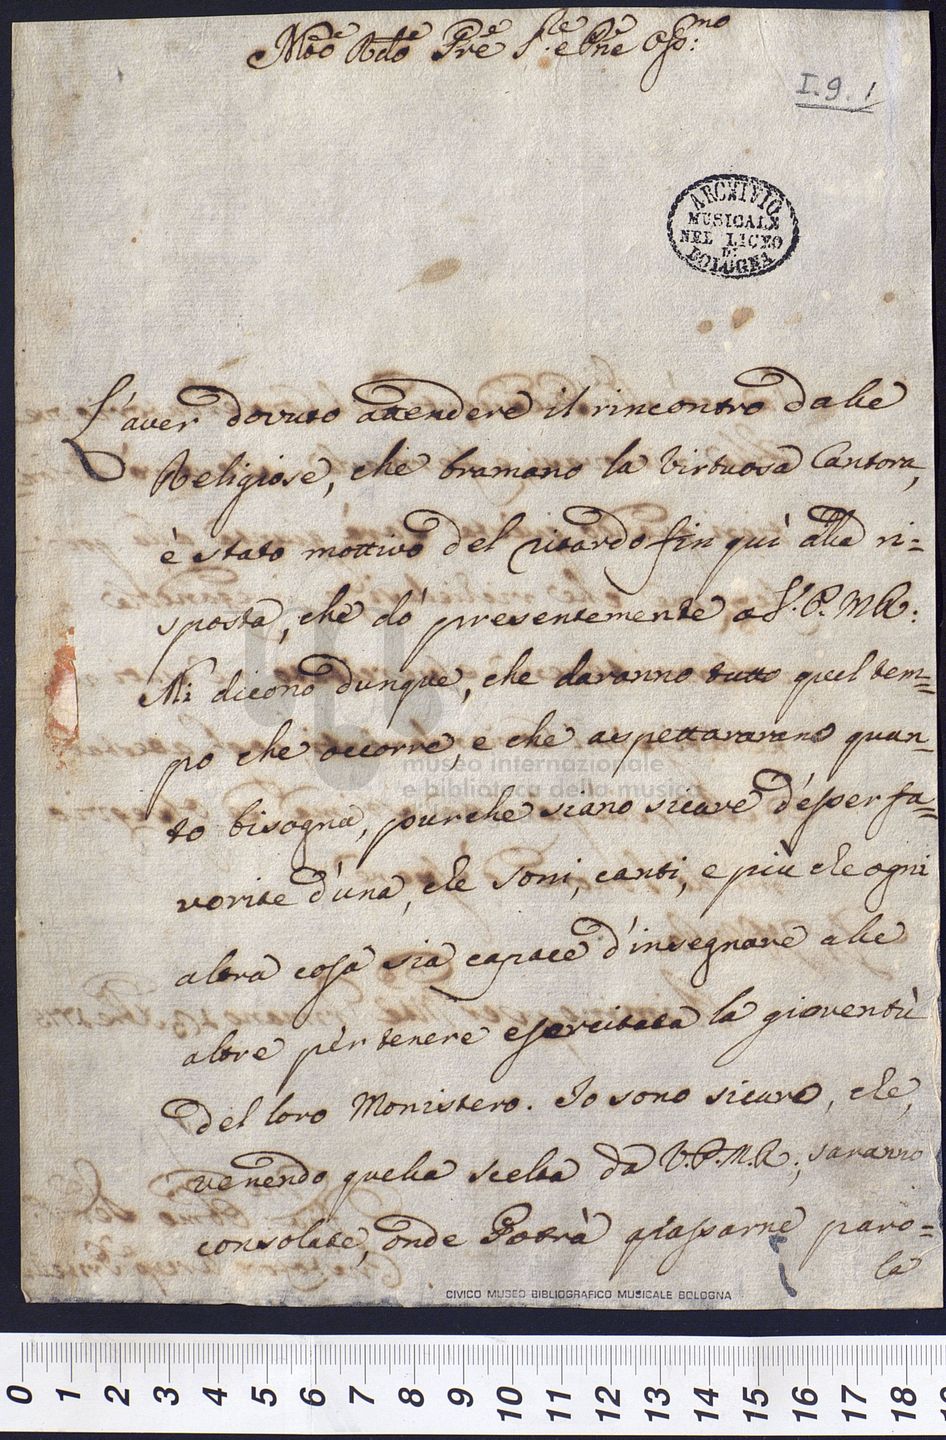 Mõo Rdo Pre S.e e Pne Oss:mo
I. 9. 1
ARCHIVIO
MUSICALE
NEL LICEO
DI
BOLOGNA
L'aver dovuto attendere il rincontro dalle
Religiose, che bramano la Virtuosa Cantora,
è stato mottivo del ritardo fin quì alla ri=
sposta, che dò presentemente a V. P. M. R:
Mi dicono dunque, che daranno tutto quel tem=
po che occorre e che aspettaranno quan=
museo internazionale
e biblioteca della musica
to bisogna, purche siano sicure d'esser fa=
vorite d'una, che soni, canti, e più che ogni
altra cosa sia capace d'insegnare alle
altre pèr tenere esercitata la gioventù
del loro Monistero. Io sono sicuro, che,
venendo quella scelta da V. P. M. R:, saranno
consolate, onde Potrà passarne paro=
le
CIVICO MUSEO BIBLIOGRAFICO MUSICALE BOLOGNA
0 1 2 3 4 5 6 7 8 9 10 11 12 13 14 15 16 17 18